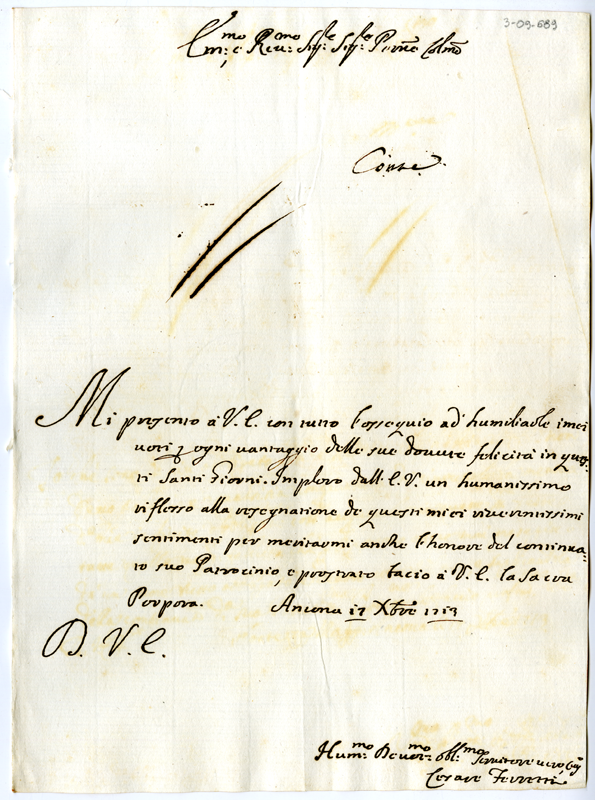 3-09-689
Em:mo e Reu:mo Sig:e Sig:e Pr̄one Colmō
Conte
Mi presento à V. E. con tutto l'ossequio ad humiliarle i miei
uoti p ogni uantaggio delle sue douute felicità in ques:
ti Santi Giorni. Imploro dall'E. V. un humanissimo
riflesso alla resegnatione de questi miei riuerentissimi
sentimenti per meritarmi anche l'honore del continua:
to suo Patrocinio, e prostrato bacio à V. E. la Sacra
Porpora. Ancona 17 Xbre 1713
D. V. E.
Hum:mo Deuot:mo obl:mo Seruitore uero
Cesare Ferretti